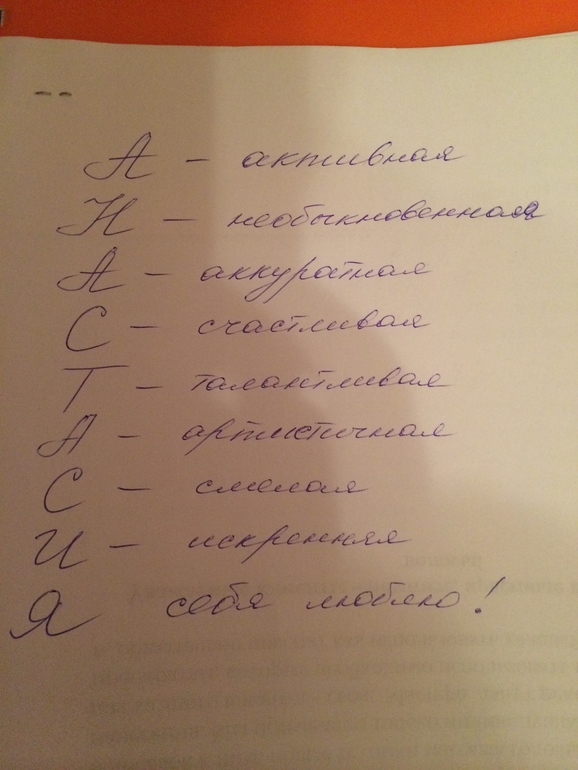 А – активная
Н – необыкновенная
А – аккуратная
С – счастливая
Т – талантливая
А – артистичная
С – смелая
И – искренняя
Я себя люблю!